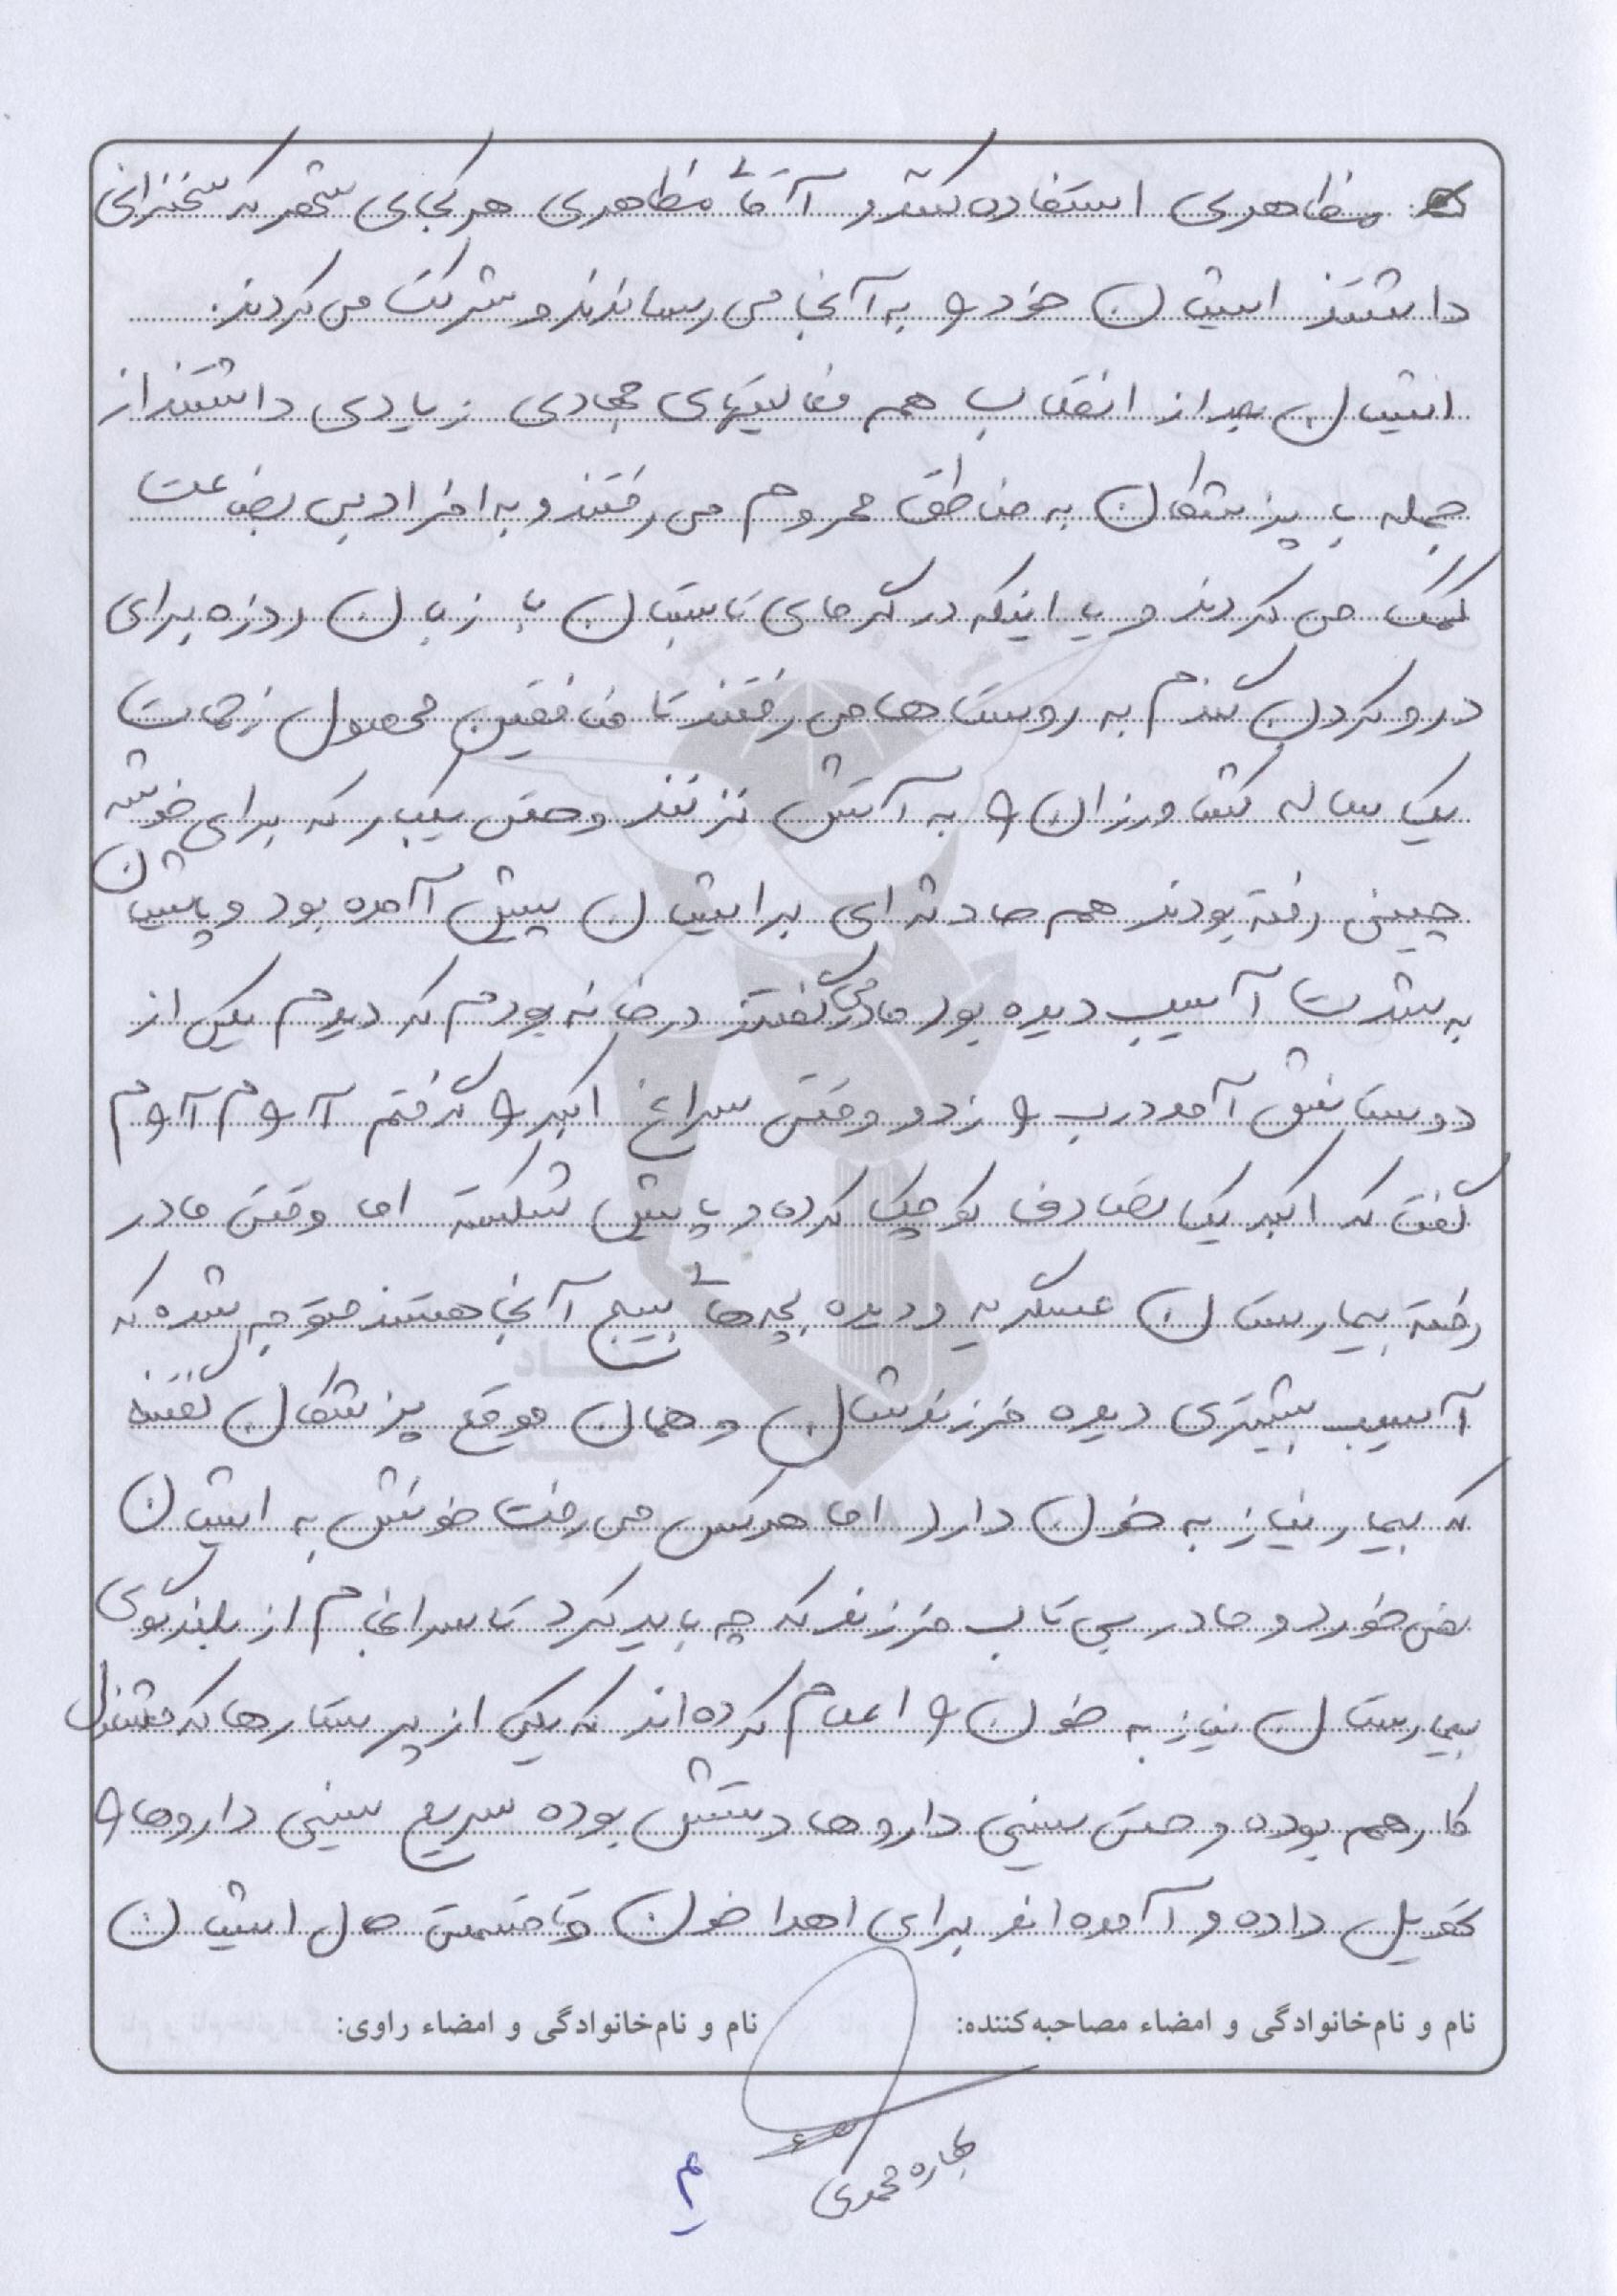 مظاهری استفاده کنند و آقای مظاهری هر کجای شهر که سخنرانی
داشتند ایشان خود را به آنجا می رساندند و شرکت می کردند.
ایشان بعد از انقلاب هم فعالیتهای جهادی زیادی داشتند از
جمله با پزشکان به مناطق محروم می رفتند و به افراد بی بضاعت
کمک می کردند و یا اینکه در گرمای تابستان با زبان روزه برای
درو کردن گندم به روستاها می رفتند تا منافقین محصول زحمات
یک ساله کشاورزان را به آتش نزنند و حتی یکبار که برای خوشه
چینی رفته بودند هم حادثه ای برایشان پیش آمده بود و پایشان
به شدت آسیب دیده بود مادر می گفتند در خانه بودم که دیدم یکی از
دوستانش آمد درب را زد و وقتی سراغ اکبر را گرفتم آرام آرام
گفت که اکبر یک تصادف کوچک کرده و پایش شکسته اما وقتی مادر
رفته بیمارستان عسگریه و دیده بچه های بسیج آنجا هستند متوجه شده که
آسیب بیشتری دیده فرزندشان و همان موقع پزشکان گفتند
که بیمار نیاز به خون دارد اما هر کس می رفت خونش به ایشان
نمی خورد و مادر بی تاب فرزند که چه باید کرد تا سرانجام از بلندگوی
بیمارستان نیاز به خون را اعلام کرده اند که یکی از پرستارها که مشغول
کار هم بوده و حتی سینی داروها دستش بوده سریع سینی داروها را
تحویل داده و آمده اند برای اهدا خون و قسمتی حال ایشان
نام و نام‌خانوادگی و امضاء مصاحبه‌کننده:
نام و نام‌خانوادگی و امضاء راوی:
بهاره محمدی
م